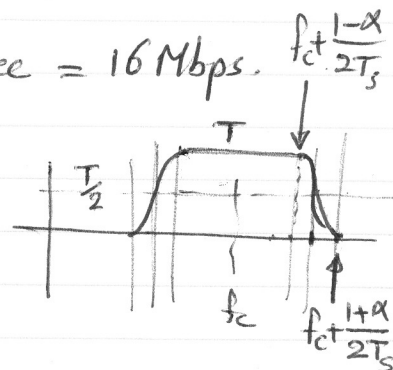 ee = 16 Mbps.
f_c + \frac{1-α}{2T_s}
T
\frac{T}{2}
f_c
f_c + \frac{1+α}{2T_s}